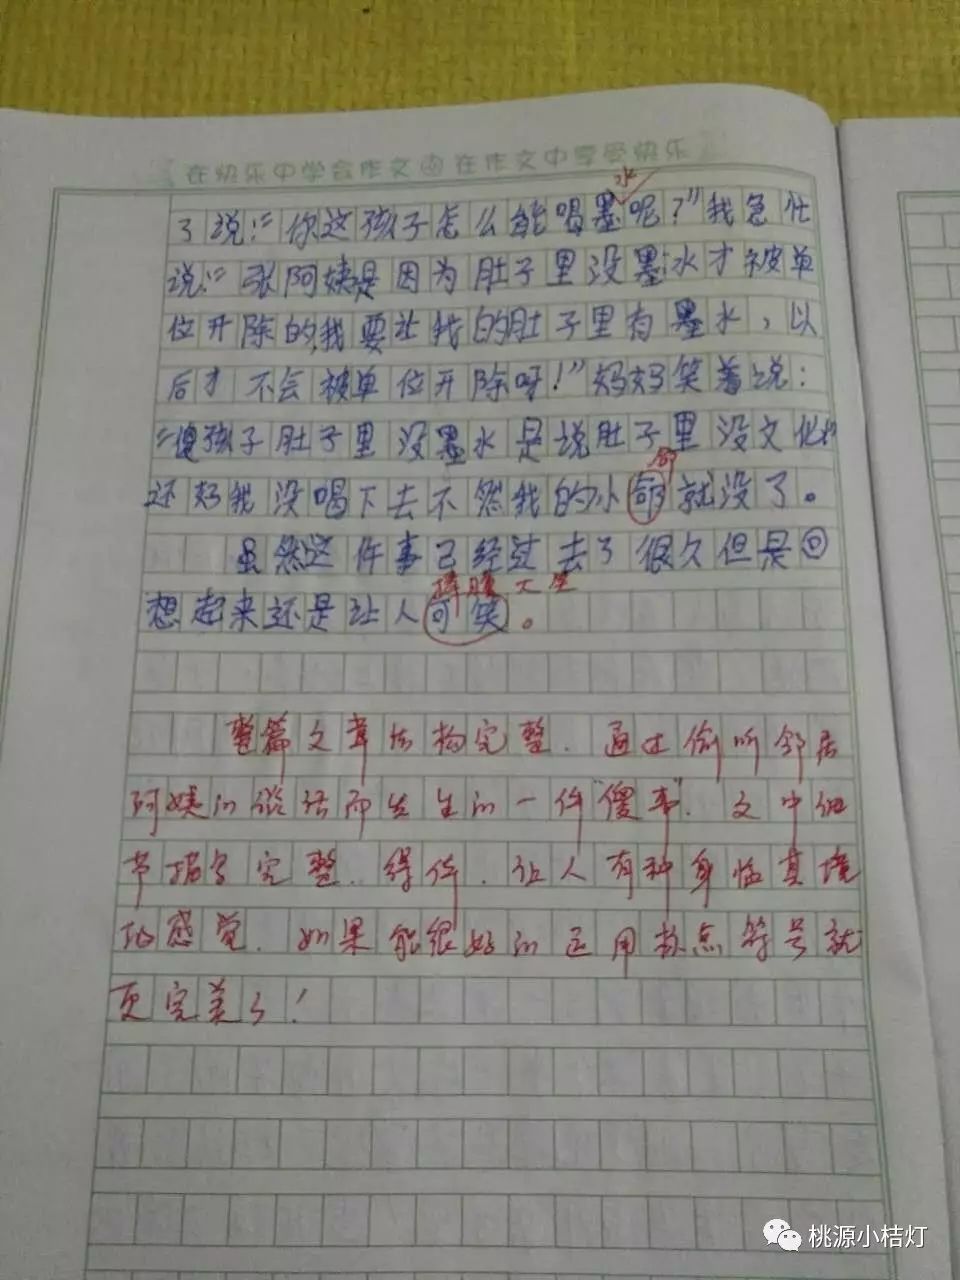 在快乐中学会作文 在作文中享受快乐
水
了说:“你这孩子怎么能喝墨呢?”我急忙
说:“张阿姨是因为肚子里没墨水才被单
位开除的,我要让我的肚子里有墨水,以
后才不会被单位开除呀!”妈妈笑着说:
“傻孩子肚子里没墨水是说肚子里没文化
还好我没喝下去不然我的小 就没了。
虽然这件事已经过去了很久但是回
捧腹大笑
想起来还是让人可笑。
整篇文章结构完整.通过偷听邻居
阿姨的谈话而发生的一件“傻事”.文中细
节描写完整.得体.让人有种身临其境
的感觉.如果能很好的运用标点符号就
更完美了!
桃源小桔灯